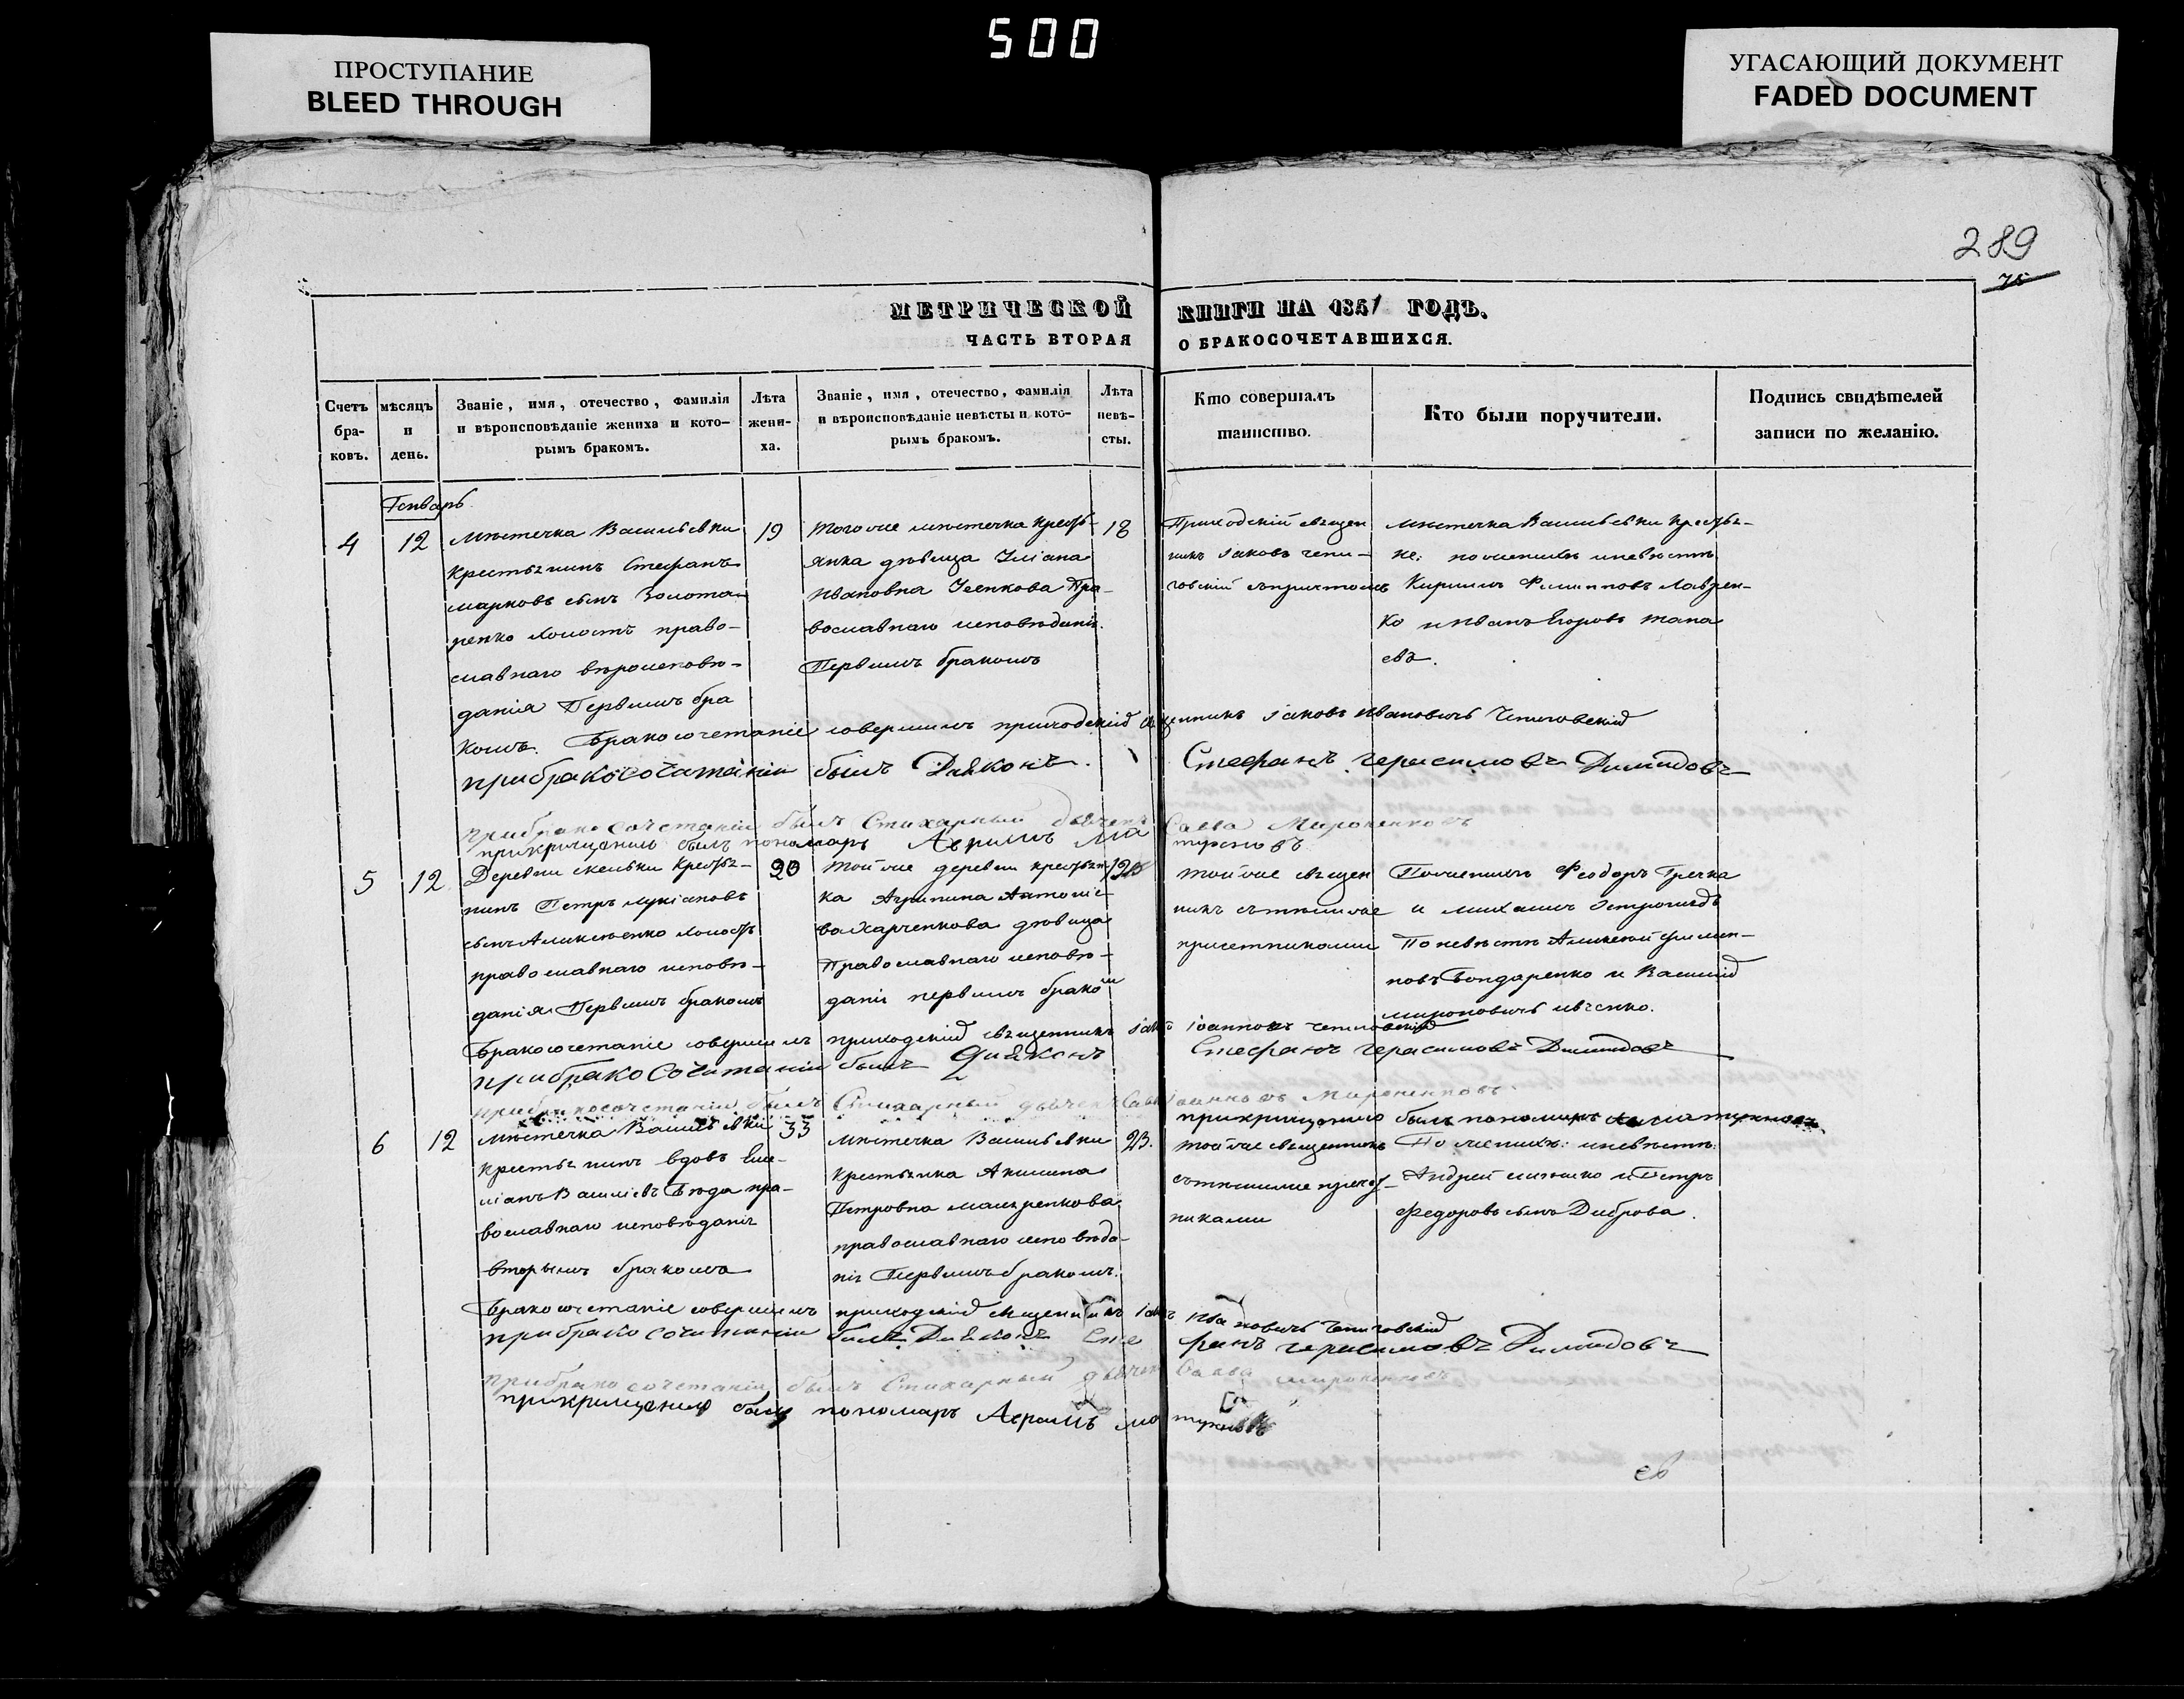 500
ПРОСТУПАНИЕ
BLEED THROUGH
УГАСАЮЩИЙ ДОКУМЕНТ
FADED DOCUMENT
289
75
МЕТРИЧЕСКОЙ КНИГИ НА 1851 ГОДЪ.
ЧАСТЬ ВТОРАЯ О БРАКОСОЧЕТАВШИХСЯ.
Счетъ бра-
ковъ.
мѣсяцъ
и
день.
Званіе, имя, отечество, фамилія
и вѣроисповѣданіе жениха и кото-
рымъ бракомъ.
Лѣта
жени-
ха.
Званіе, имя, отечество, фамилія
и вѣроисповѣданіе невѣсты и кото-
рымъ бракомъ.
Лѣта
невѣ-
сты.
Кто совершалъ
таинство.
Кто были поручители.
Подпись свидѣтелей
записи по желанію.
Генварь
4
12
мѣстечка Васильевки
крестьянинъ Стефанъ
марковъ сынъ Золота-
ренко холостъ право-
славнаго вѣроисповѣ-
данія Первымъ бра
комъ.
19
того же мѣстечка крестъ-
янка дѣвица Уліана
Ивановна Пра-
вославнаго исповѣданія.
Первымъ бракомъ
18
Приходскій священ
никъ Іаковъ чепи-
говскій съпричтомъ
мѣстечка Васильевки крестья-
не: пожениху иневѣстѣ
Кирилъ Филиповъ Лаврен-
ко и Иванъ Егоровъ
Бракосочетаніе совершилъ приходскій священникъ Іаковъ Ивановичъ Чепиговскій
прибракосочетаніи былъ Діяконъ. Стефанъ герасимовъ Димидовъ
прибракосочетаніи былъ Стихарный дьячекъ Савва Мироненковъ
прикрищению былъ пономарь
5
12
Деревни скельки крестья-
нинъ Петръ лукіановъ
сынъ холостъ
православнаго исповѣ-
данія Первымъ бракомъ
20
той же деревни крестьян
ка Агрипина Антоніе-
ва Харченкова дѣвица
Православнаго исповѣ-
данія первымъ бракомъ
той же священ
никъ сътѣмиже
причетниками
Пожениху Феодоръ Гречка
и михаилъ
По невѣстѣ Алексей филип-
повъ Бондаренко и Василій
мироновичъ ивченко.
Бракосочетаніе совершилъ приходскій священникъ Іаковъ Іоанновъ чепиговскій
прибракосочетаніи былъ Діяконъ Стефанъ герасимовъ Димидовъ
прибракосочетаніи былъ Стихарный дьячекъ Савва Мироненковъ
прикрищению былъ пономарь
6
12
мѣстечка Васильевки
крестьянинъ вдовъ Еме-
ліанъ Василіевъ Бѣда пра-
вославнаго исповѣданія
вторымъ бракомъ
33
мѣстечка Васильевки
крестьянка Акилина
Петровна
православнаго исповѣда-
нія Первымъ бракомъ.
23.
той же священникъ
сътѣмиже причет-
никами
По жениху: иневѣстѣ:
Андрей и Петръ
Федоровъ сынъ Диброва.
Бракосочетаніе совершилъ приходскій священникъ Іаковъ Ивановичъ Чепиговскій
прибракосочетаніи былъ Діяконъ Стефанъ герасимовъ Димидовъ
прибракосочетаніи былъ Стихарный дьячекъ Савва мироненковъ
прикрищению былъ пономарь